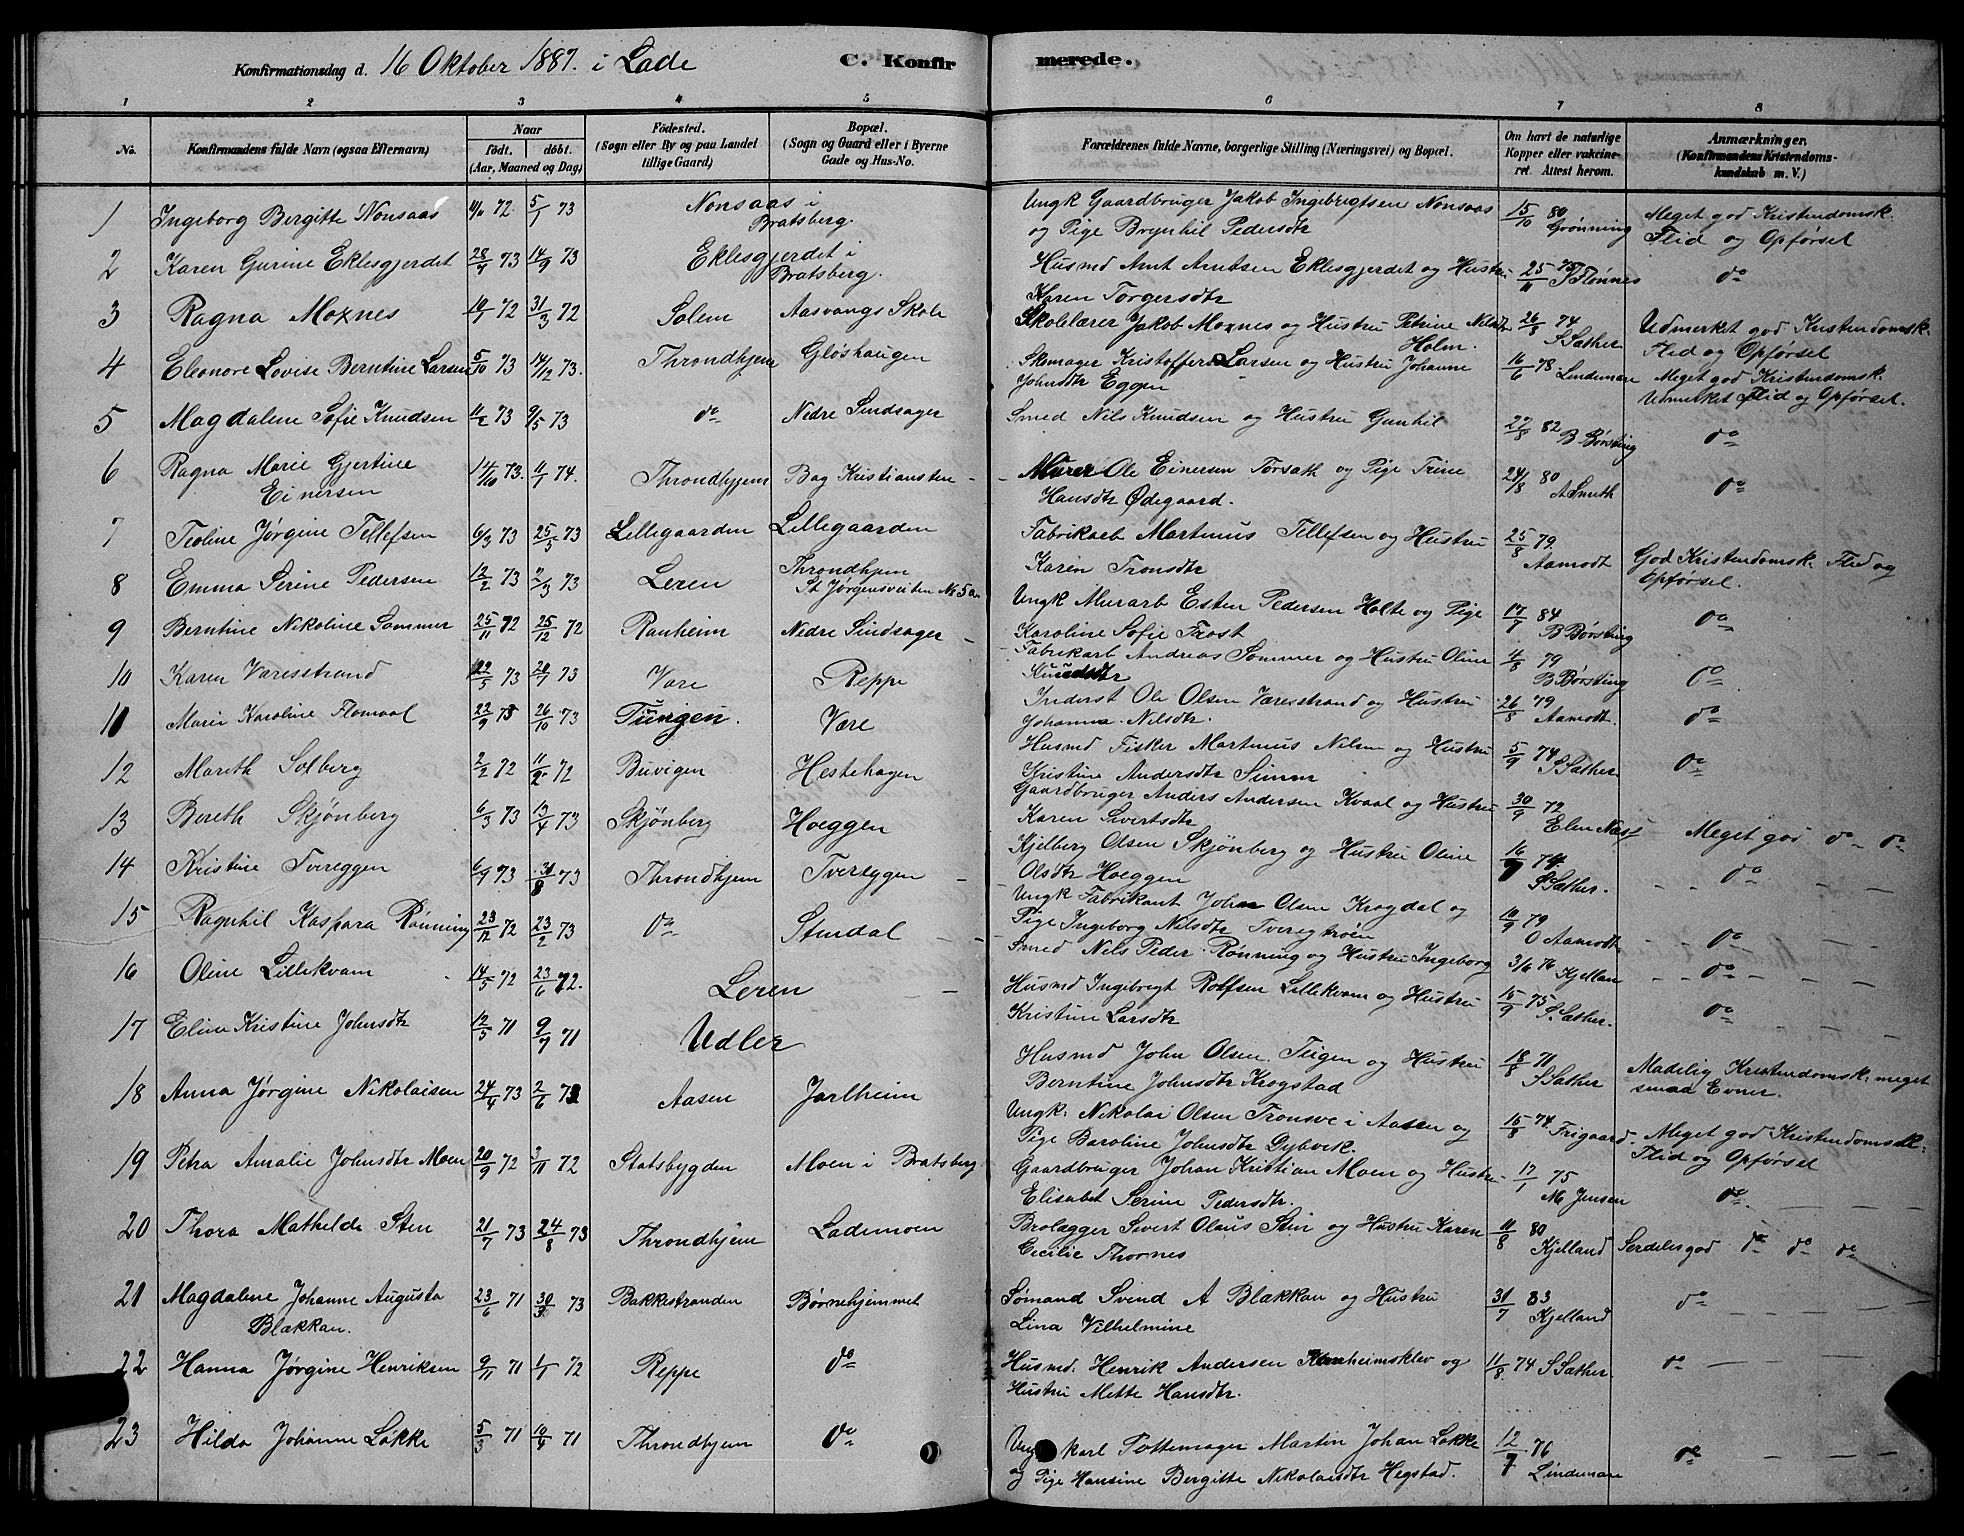 Konfirmationsdag d. 16 Oktober 1887. i Lade C. Konfirmerede.
1 2 3 4 5 6 7 8
No. Konfirmandens fulde Navn (ogsaa Efternavn) Naar født. døbt. (Aar, Maaned og Dag) Fødested. (Sogn eller By og paa Landet tillige Gaard) Bopæl. (Sogn og Gaard eller i Byerne Gade og Hus-No. Forældrenes fulde Navne, borgerlige Stilling (Næringsvei) og Bopæl. Om havt de naturlige Kopper eller vakcineret. Attest herom. Anmærkninger. (Konfirmandens Kristendomskundskab m. V.)
1 Ingeborg Bergitte Nonsaas 72. 5/1 73 Nonsaas i Bratsberg. Ungk Gaardbruger Jakob Ingebrigtsen Nonsaas 15/10 80 Grønning Meget god Kristendomsk.
og Pige Brynhil Pedersdtr Flid og Opførsel
2 Karen Gurine Eklesgjerdet 28/7 73 14/9 73 Eklesgjerdet i Bratsberg. Husmd Arnt Arntsen Eklesgjerdet og Hustru 25/11 Flønnes do
Karen Torgersdtr
3 Ragna Moxnes 10/1 72 31/3 72 Solem Aasvangs Skole Skolelærer Jakob Moxnes og Hustru Petrine Nilsdtr Holm. 26/8 74 S Sather Udmerket god Kristendomsk.
Flid og Opførsel
4 Eleonore Lovise Berntine Larsen 5/10 73 14/12 73. Throndhjem Gløshaugen Skomager Kristoffer Larsen og Hustru Johanne 16/6 78 Lindeman Meget god Kristendomsk.
Johnsdtr Eggen Udmerket Flid og Opførsel.
5 Magdalene Sofie Knudsen 11/2 73 9/5 73 do Nedre Sindsager Smed Nils Knudsen og Hustru Gunhil 27/8 82 B Børsting do
6 Ragna Marie Gjertine Einersen 14/10 73. 11/1 74. Throndhjem Bag Kristiansten Murer Ole Einersen Torsath og Pige Trine 24/8 80 A Smith do
Hansdtr Ødegaard.
7 Teoline Jørgine Tellefsen 6/3 73 25/5 73 Lillegaarden Lillegaarden Fabrikarb Martinus Tellefsen og Hustru 25/8 79. Aamodt God Kristendomsk. Flid og Opførsel.
Karen Tronsdtr
8 Emma Serine Pedersen 12/2 73 2/3 73 Leren Throndhjem St Jørgensveiten No 5a Ungk Murarb Esten Pedersen Holte og Pige 17/7 84 B Børsting do
Karoline Sofie Frost
9 Berntine Nikoline Sommer 25/11 72 25/12 72 Ranheim Nedre Sindsager Fabrikarb Andreas Sommer og Hustru Oline 4/8 79 B Børsting do
Knudsdtr
10 Karen Væresstrand 22/5 73 20/7 73 Være Reppe Inderst Ole Olsen Væresstrand og Hustru 26/8 79 Aamodt. do
Johanna Nilsdtr.
11 Marie Karoline 22/9 73 26/10 73 Tungen. Være Husmd Fisker Martinus Nilsen og Hustru 5/9 74 S Sather do
Kristine Andersdtr
12 Mareth Solberg 2/2 72 11/2 72 Buvigen Hestehagen Gaardbruger Anders Andersen Kvaal og Hustru 30/9 72 Elen
Karen Sivertsdtr
13 Bereth Skjønberg 6/3 73 13/4 73 Skjønberg Hoeggen Kjelberg Olsen Skjønberg og Hustru Oline 16/9 74. S Sather. Meget god do do
Olsdtr Hoeggen
14 Kristine Tvereggen 6/9 73 31/8 73 Throndhjem Tvereggen Ungk Fabrikant John Olsen Krogdal og 10/9 79 O Aamodt do
Pige Ingeborg Nilsdtr
15 Ragnhil Kaspara Rønning 23/12 72 23/2 73 do Stendal Smed Nils Peder Rønning og Hustru Ingeborg 3/6 76 Kjelland do
16 Oline Lillekvam 14/5 72 23/6 72. Leren Husmd Ingebrigt Rolfsen Lillekvam og Hustru 15/9 75 S. Sather. do
Kristine Larsdtr
17 Eline Kristine Johnsdtr 12/5 71 9/7 71 Udler Husmd John Olsen Teigen og Hustru 18/8 71 S Sather Madelig Kristendomsk. meget smaa Evner.
Berntine Johnsdtr Krogstad
18 Anna Jørgine Nikolaisen 24/4 73 2/6 73 Aasen Jarlheim Ungk. Nikolai Olsen Tronsve i Aasen og 15/8 74 Frigaard. Meget god Kristendomsk.
Pige Baroline Johnsdtr Dybvik. Flid og Opførsel
19 Petra Amalie Johnsdtr Moen 20/9 72 3/11 72 Statsbygden Moen i Bratsberg Gaardbruger Johan Kristian Moen og Hustru 17/1 75 M Jensen do
Elisabet Serine Pedersdtr.
20 Thora Mathilde Sten 21/7 73 24/8 73 Throndhjem Lademoen Brolægger Sivert Olaus Sten og Hustru Karen 11/8 80 Kjelland Serdeles god do do do
Cecilie Thornes
21 Magdalene Johanne Augusta Blækkan. 23/6 71 30/3 73 Bakkestranden Børnehjemmet Sømand Svend A Blækkan og Hustru 31/7 83 Kjelland do
Lina Vilhelmine
22 Hanna Jørgine Henriksen 9/11 71 1/1 72 Reppe do Husmd. Henrik Andersen Ranheimsklev og 11/8. 74 S Sather. do
Hustru Mette Hansdtr.
23 Hilda Johanne Løkke 5/3 71 10/4 71 Throndhjem do Ungkarl Pottemager Martin Johan Løkke 12/7 76 Lindeman do
og Pige Hansine Bergitte Nikolaisdtr Hegstad.